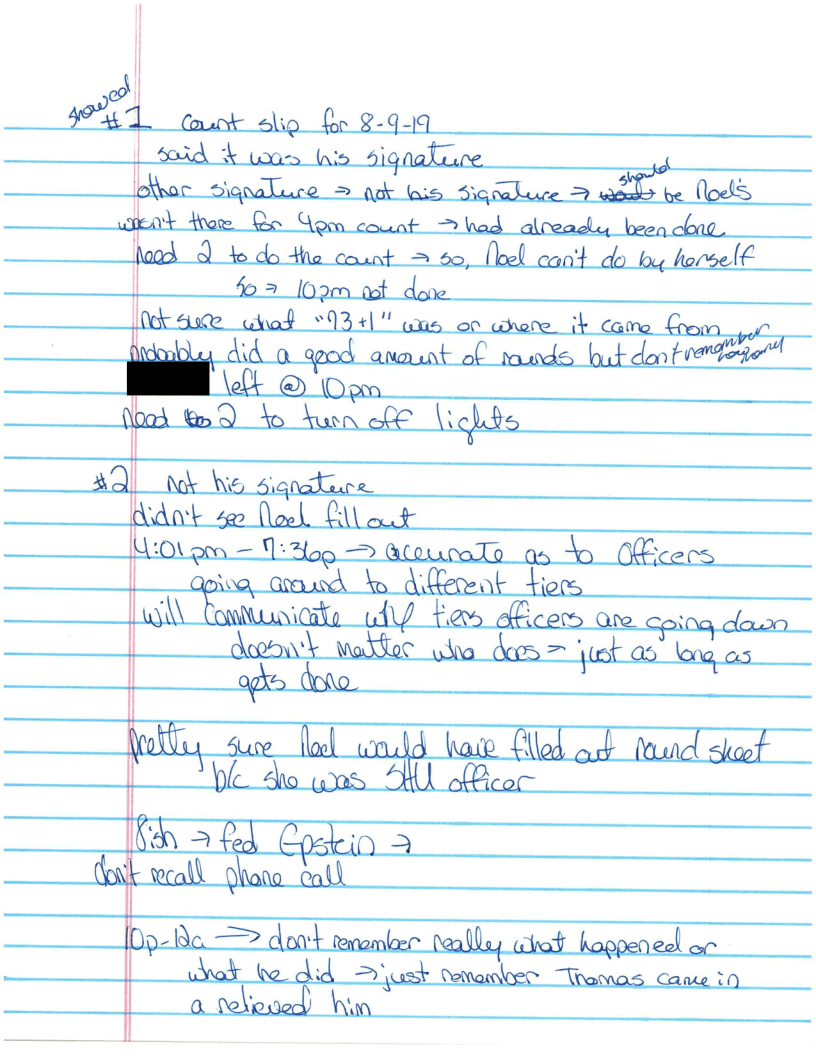 showed
#1 Count slip for 8-9-19
said it was his signature
other signature → not his signature → would should be Noel's
wasn't there for 4pm count → had already been done
need 2 to do the count → so, Noel can't do by herself
so → 10pm not done
not sure what "73+1" was or where it came from
probably did a good amount of rounds but don't remember
left @ 10pm
need to 2 to turn off lights
#2 not his signature
didn't see Noel fill out
4:01pm - 7:36p → accurate as to Officers
going around to different tiers
will communicate tiers officers are going down
doesn't matter who does = just as long as
gets done
pretty sure Noel would have filled out round sheet
b/c she was SHU officer
fish → fed Epstein →
don't recall phone call
10p-12a → don't remember really what happened or
what he did → just remember Thomas came in
a relieved him